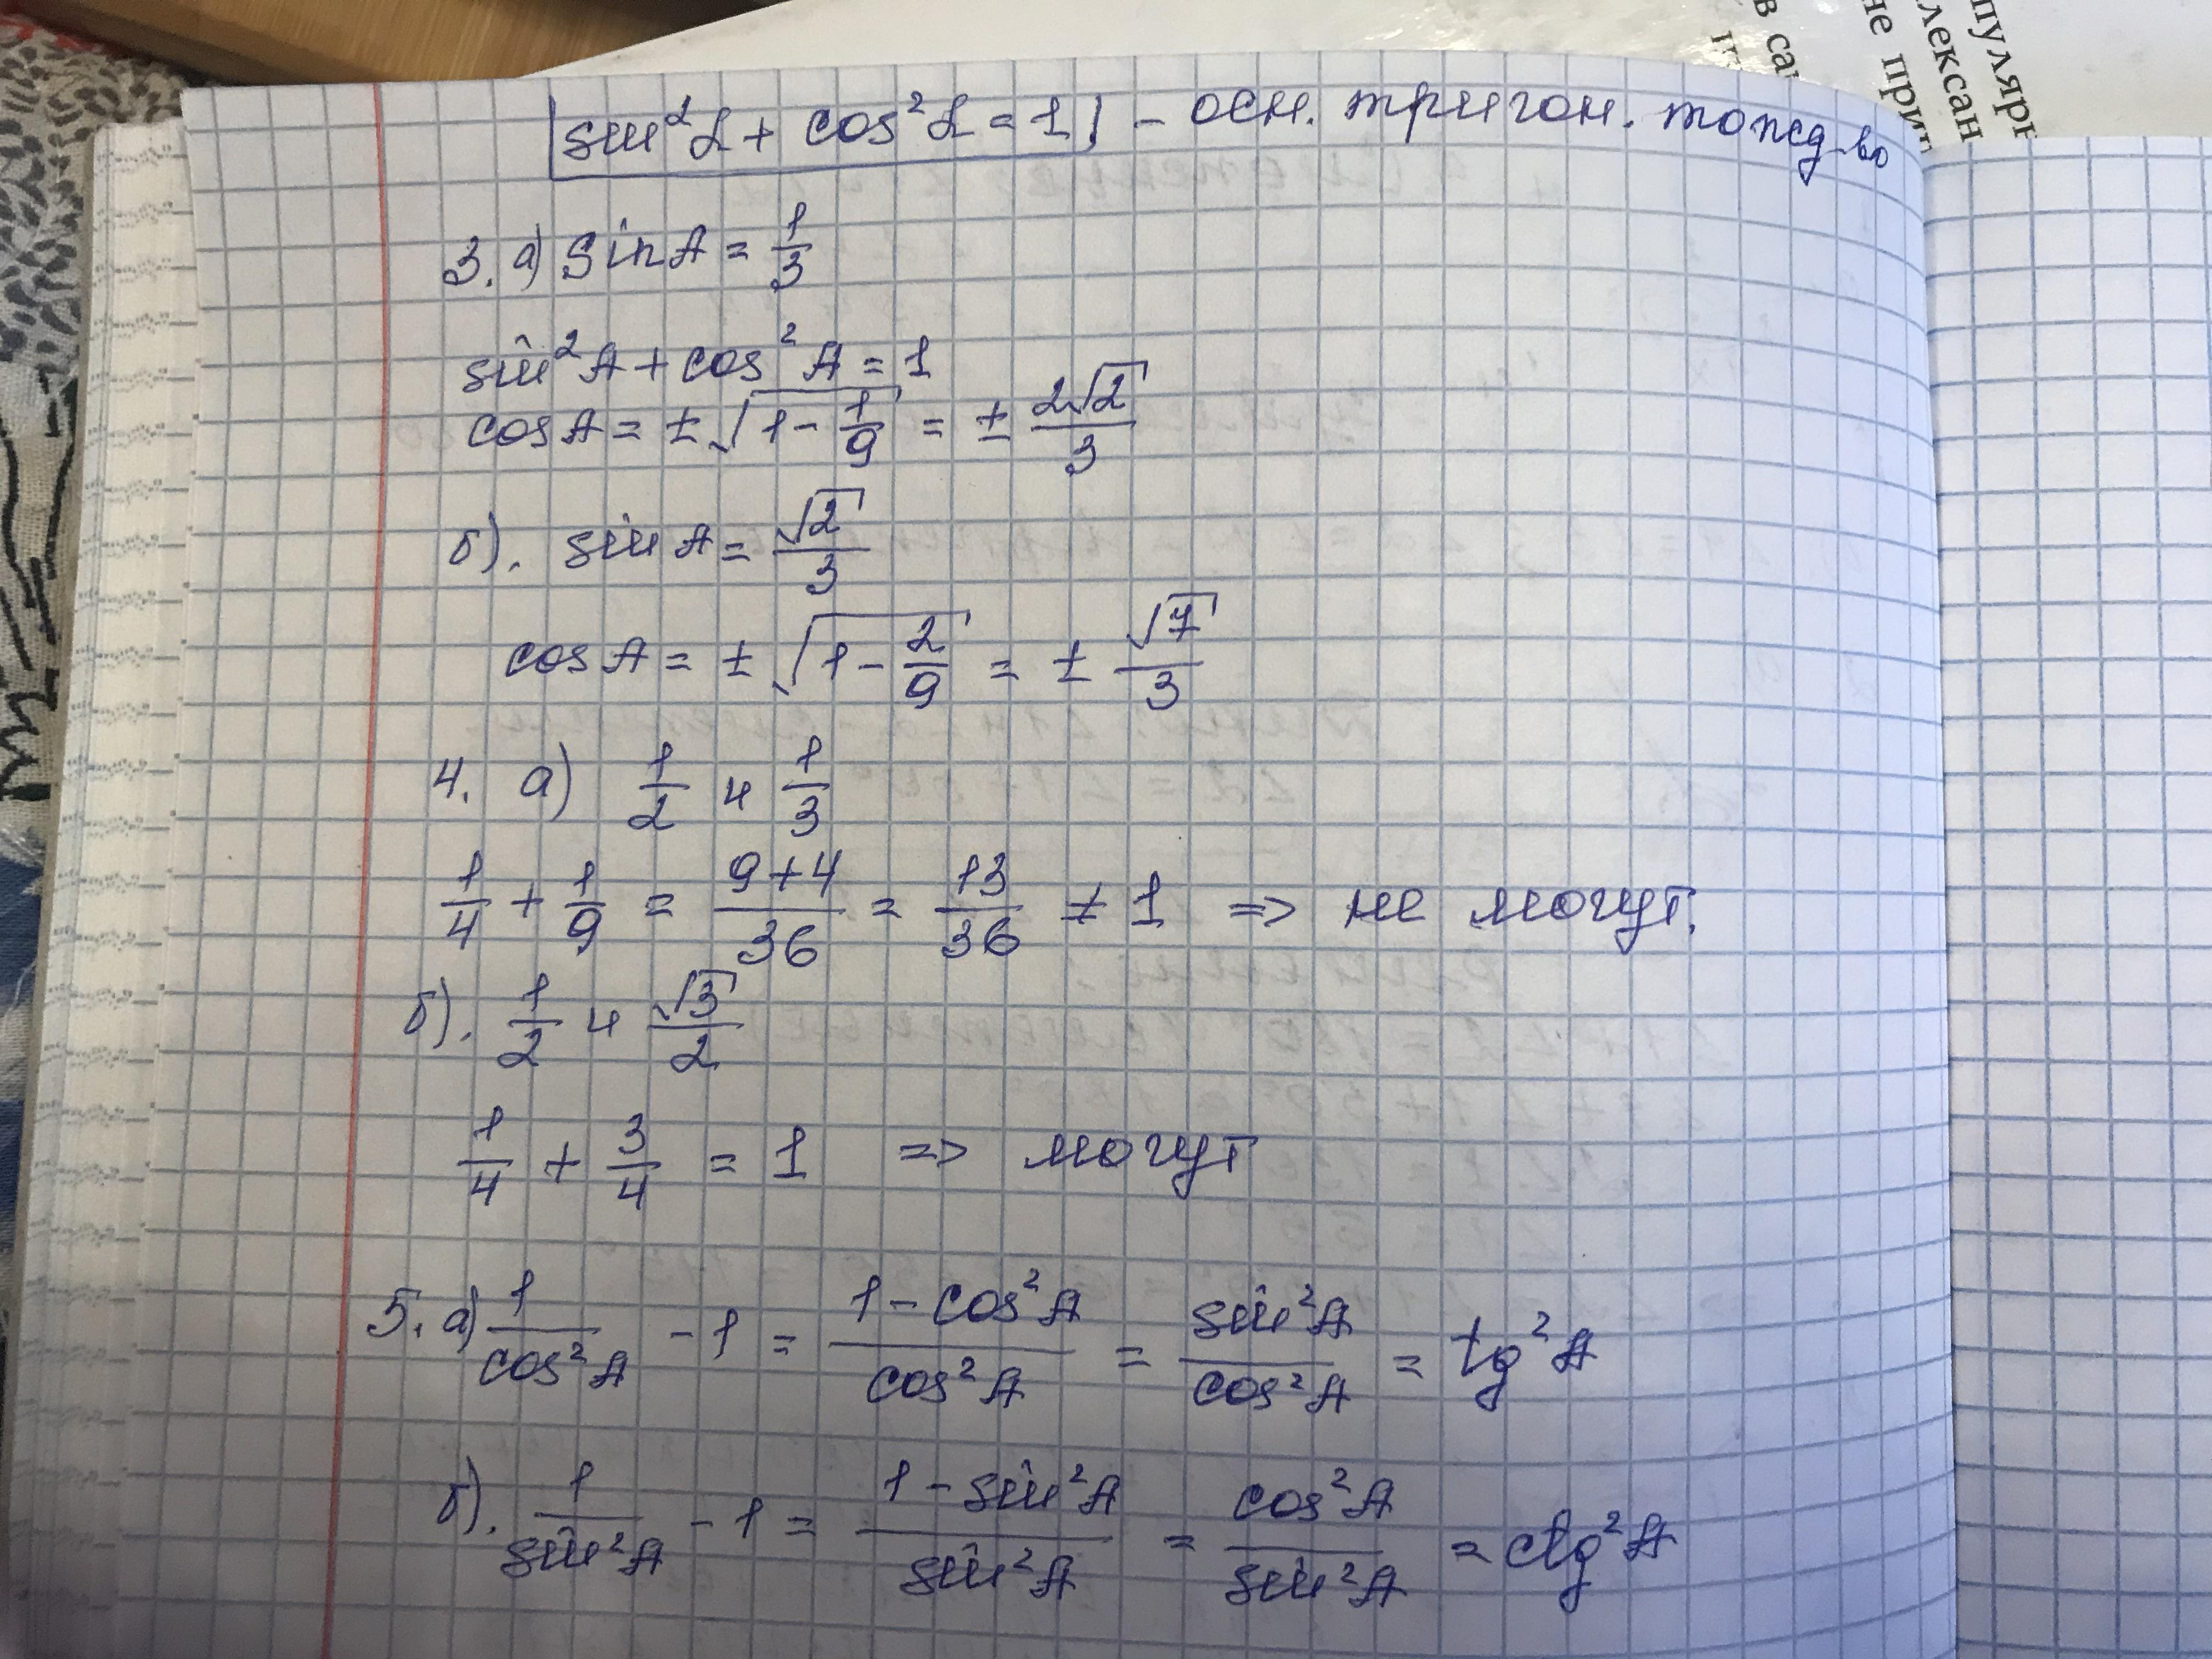 sin²α + cos²α = 1 - осн. тригон. тожд-во
3. а) sin A = 1/3
sin²A + cos²A = 1
cos A = ± √(1 - 1/9) = ± 2√2/3
б). sin A = √2/3
cos A = ± √(1 - 2/9) = ± √7/3
4. а) 1/2 и 1/3
1/4 + 1/9 = (9+4)/36 = 13/36 ≠ 1 => не могут.
б). 1/2 и √3/2
1/4 + 3/4 = 1 => могут
5. а) 1/cos²A - 1 = (1 - cos²A)/cos²A = sin²A/cos²A = tg²A
б). 1/sin²A - 1 = (1 - sin²A)/sin²A = cos²A/sin²A = ctg²A
пулярн
лексан
не при
в са